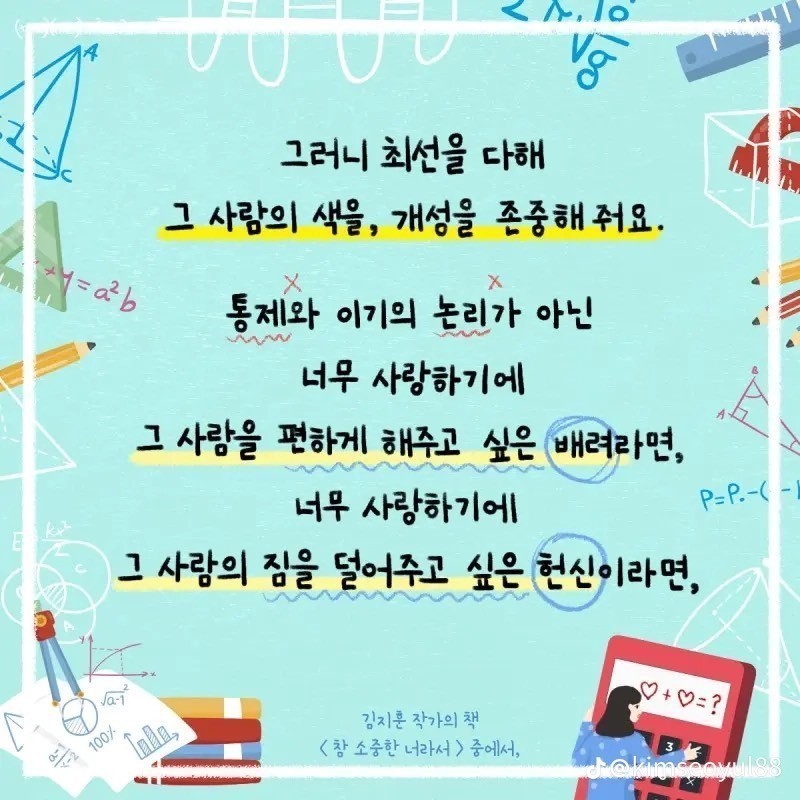 그러니 최선을 다해
그 사람의 색을, 개성을 존중해 줘요.
통제와 이기의 논리가 아닌
너무 사랑하기에
그 사람을 편하게 해주고 싶은 배려라면,
너무 사랑하기에
그 사람의 짐을 덜어주고 싶은 헌신이라면,
김지훈 작가의 책
< 참 소중한 너라서 > 중에서,
A
C
+y=a²b
B
A
C
A
y
x
√a-1²
100%
♡+♡=?
3
@kimseoyul88